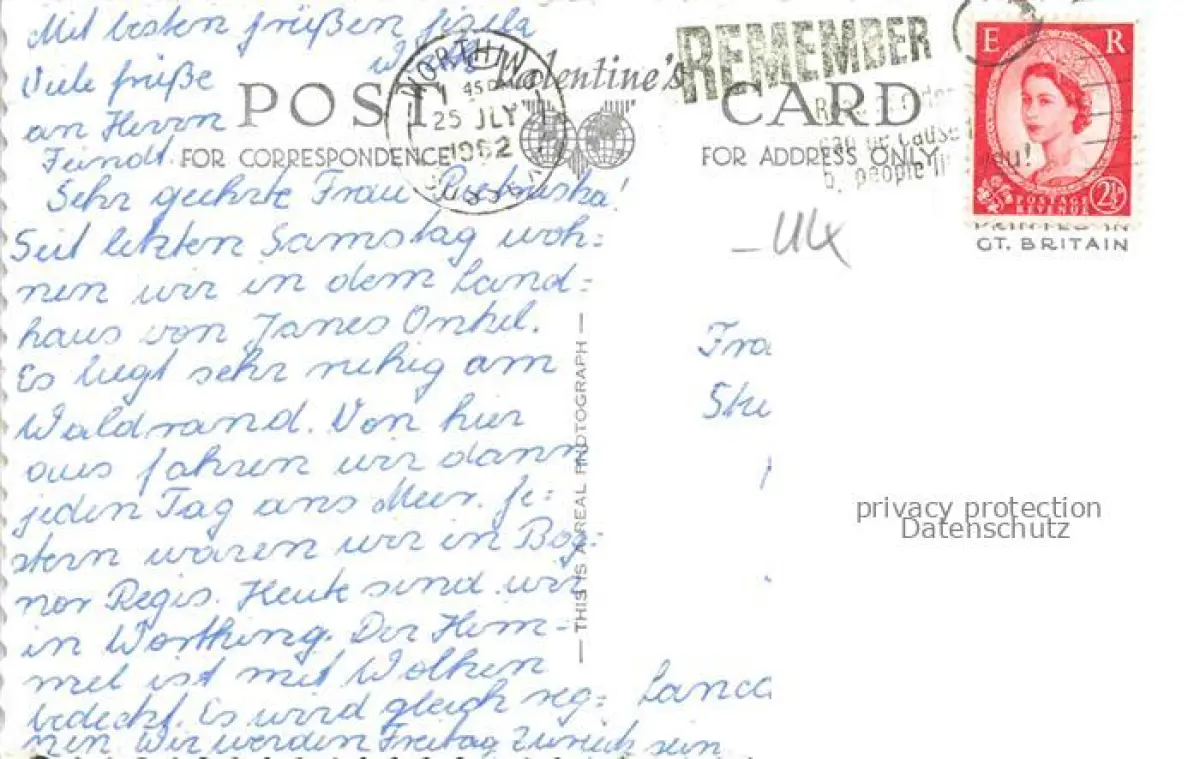 Mit besten Grüßen Gisela
Viele Grüße
an Herrn
Feindt.
Valentine's
POST CARD
FOR CORRESPONDENCE
FOR ADDRESS ONLY
WORTHING
45
25 JLY
1962
SUSSEX
REMEMBER
can be caused
by people
you!
E R
POSTAGE
REVENUE
2½
PRINTED IN
GT. BRITAIN
Sehr geehrte Frau
Seit letzten Samstag woh=
nen wir in dem Land=
haus von Janes Onkel.
Es liegt sehr ruhig am
Waldrand. Von hier
aus fahren wir dann
jeden Tag ans Meer. Ge=
stern waren wir in Bog=
nor Regis. Heute sind wir
in Worthing. Der Him=
mel ist mit Wolken
bedeckt. Es wird gleich reg=
nen. Wir werden Freitag zurück sein
— THIS IS A REAL PHOTOGRAPH —
Fra
Lanca
privacy protection
Datenschutz